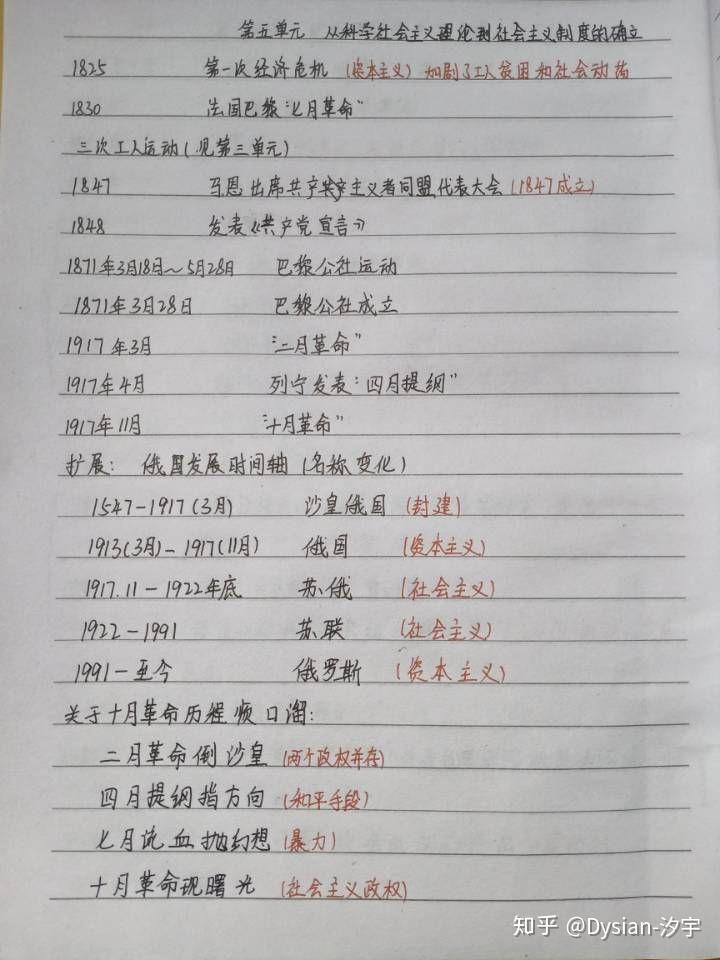 第五单元 从科学社会主义理论到社会主义制度的确立
1825 第一次经济危机 (资本主义) 加剧了工人贫困和社会动荡
1830 法国巴黎"七月革命"
三次工人运动(见第三单元)
1847 马恩出席共产主义者同盟代表大会(1847成立)
1848 发表《共产党宣言》
1871年3月18日～5月28日 巴黎公社运动
1871年3月28日 巴黎公社成立
1917年3月 "二月革命"
1917年4月 列宁发表"四月提纲"
1917年11月 "十月革命"
扩展: 俄国发展时间轴(名称变化)
1547-1917(3月) 沙皇俄国 (封建)
1913(3月)-1917(11月) 俄国 (资本主义)
1917.11-1922年底 苏俄 (社会主义)
1922-1991 苏联 (社会主义)
1991-至今 俄罗斯 (资本主义)
关于十月革命历程顺口溜:
二月革命倒沙皇 (两个政权并存)
四月提纲指方向 (和平手段)
七月流血抛幻想 (暴力)
十月革命现曙光 (社会主义政权)
知乎 @Dysian-汐宇